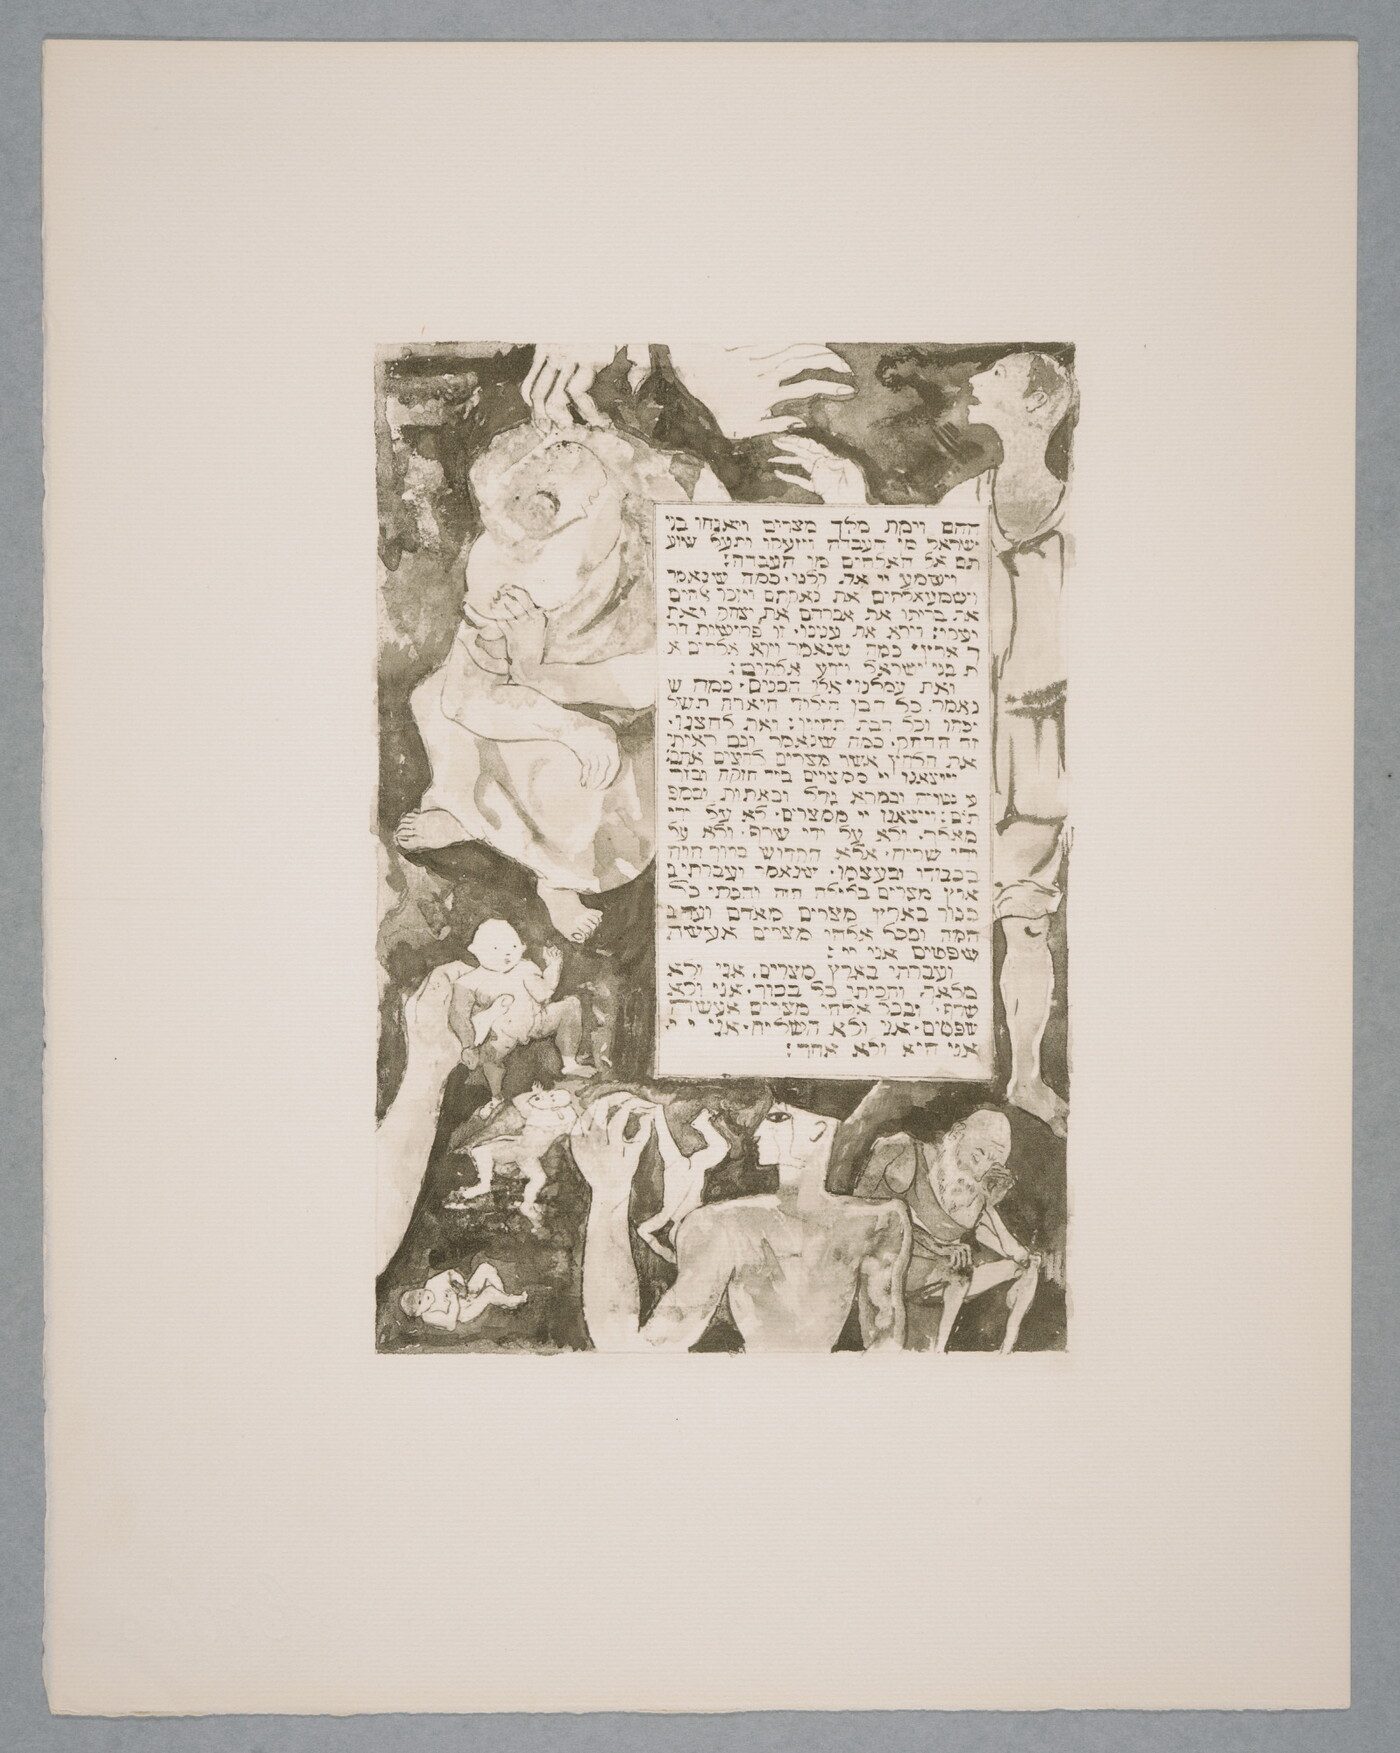 ההם וימת מלך מצרים ויאנחו בני
ישראל מן העבדה ויזעקו ותעל שוע
תם אל האלהים מן העבדה:
וישמע יי את קלנו· כמה שנאמר
וישמע אלהים את נאקתם ויזכר אלהים
את בריתו את אברהם את יצחק ואת
יעקב: וירא את ענינו· זו פרישות דר
ך ארץ· כמה שנאמר וירא אלהים א
ת בני ישראל וידע אלהים:
ואת עמלנו· אלו הבנים· כמה ש
נאמר כל הבן הילוד היארה תשל
יכהו וכל הבת תחיון: ואת לחצנו·
זה הדחק· כמה שנאמר וגם ראיתי
את הלחץ אשר מצרים לחצים אתם:
ויוצאנו יי ממצרים ביד חזקה ובזר
ע נטויה ובמרא גדל ובאתות ובמפ
תים: ויוצאנו יי ממצרים· לא על ידי
מלאך· ולא על ידי שרף· ולא על
ידי שליח· אלא הקדוש ברוך הוא
בכבודו ובעצמו· שנאמר ועברתי ב
ארץ מצרים בלילה הזה והכתי כל
בכור בארץ מצרים מאדם ועד ב
המה ובכל אלהי מצרים אעשה
שפטים אני יי:
ועברתי בארץ מצרים· אני ולא
מלאך· והכיתי כל בכור· אני ולא
שרף· ובכל אלהי מצרים אעשה
שפטים· אני ולא השליח· אני יי·
אני הוא ולא אחר: